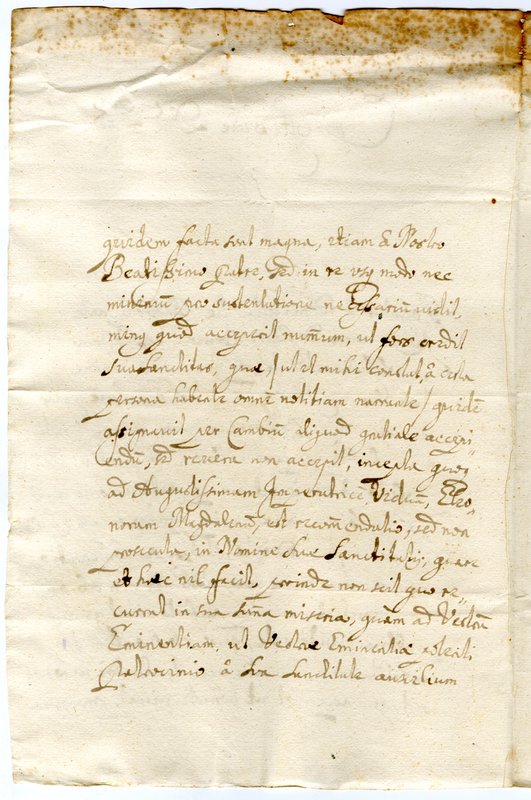 quidem facta sunt magna, etiam à Nostro
Beatissimo Patre, sed in re usq modo nec
minimũ pro sustentatione necessariũ vidit,
minq quod acceperit num̃um, ut fors credit
sua Sanctitas, quae, / ut et mihi constat à certa
persona habente omnẽ notitiam narrante / quidẽ
assignavit per Cambiũ aliquod gratiale accipi-
endũ, sed revera non accepit, incepta quoq
ad Augustissimam Imperatricẽ Viduam, Eleo-
noram Magdalenã, est recom̃endatio, sed non
prosecuta, in Nomine suae Sanctitatis, quare
et haec nil facit, perinde non scit quo re-
currat in sua sum̃a miseria, quàm ad Vestrã
Eminentiam, ut Vestrae Eminentiae
Patrocinio à Sua Sanctitate auxilium